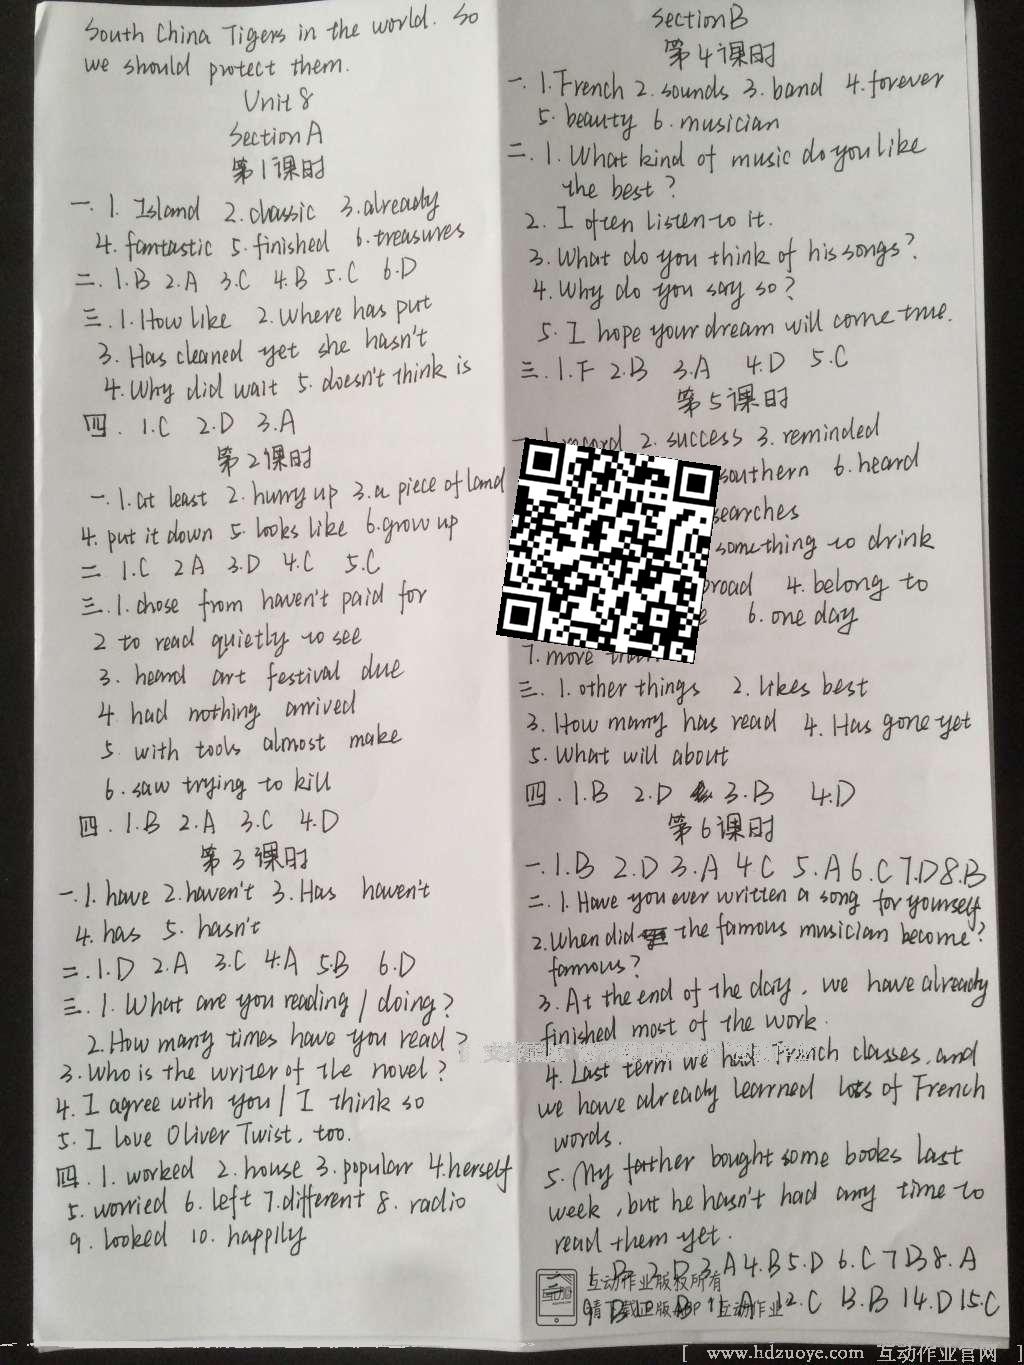 South China Tigers in the world. So
we should protect them.
Unit 8
Section A
第1课时
一. 1. Island 2. classic 3. already
4. fantastic 5. finished 6. treasures
二. 1.B 2.A 3.C 4.B 5.C 6.D
三. 1. How like 2. Where has put
3. Has cleaned yet she hasn't
4. Why did wait 5. doesn't think is
四. 1.C 2.D 3.A
第2课时
一. 1. at least 2. hurry up 3. a piece of land
4. put it down 5. looks like 6. grow up
二 1.C 2 A 3.D 4.C 5.C
三. 1. chose from haven't paid for
2 to read quietly to see
3. heard art festival due
4 had nothing arrived
5. with tools almost make
6. saw trying to kill
四. 1.B 2.A 3.C 4.D
第3课时
一. 1. have 2. haven't 3. Has haven't
4. has 5. hasn't
二. 1.D 2.A 3.C 4.A 5.B 6.D
三. 1. What are you reading / doing?
2. How many times have you read?
3. Who is the writer of the novel?
4. I agree with you / I think so
5. I love Oliver Twist, too.
四. 1. worked 2. house 3. popular 4. herself
5. worried 6. left 7. different 8. radio
9. looked 10. happily
Section B
第4课时
一. 1. French 2. sounds 3. band 4. forever
5. beauty 6. musician
二. 1. What kind of music do you like
the best?
2. I often listen to it.
3. What do you think of his songs?
4. Why do you say so?
5. I hope your dream will come true.
三. 1.F 2.B 3.A 4.D 5.C
第5课时
2. success 3. reminded
southern 6. heard
searches
something to drink
4. belong to
6. one day
7. move
三. 1. other things 2. likes best
3. How many has read 4. Has gone yet
5. What will about
四. 1.B 2.D 3.B 4.D
第6课时
一. 1.B 2.D 3.A 4 C 5.A 6.C 7.D 8.B
二. 1. Have you ever written a song for yourself
2. When did the famous musician become?
famous?
3. At the end of the day, we have already
finished most of the work.
4. Last term we had French classes, and
we have already learned lots of French
words.
5. My father bought some books last
week, but he hasn't had any time to
read them yet.
3.A 4.B 5.D 6.C 7 B 8.A
12.C 13.B 14.D 15.C
互动作业版权所有
请下载正版APP 互动作业
[ www.hdzuoye.com 互动作业官网 ]